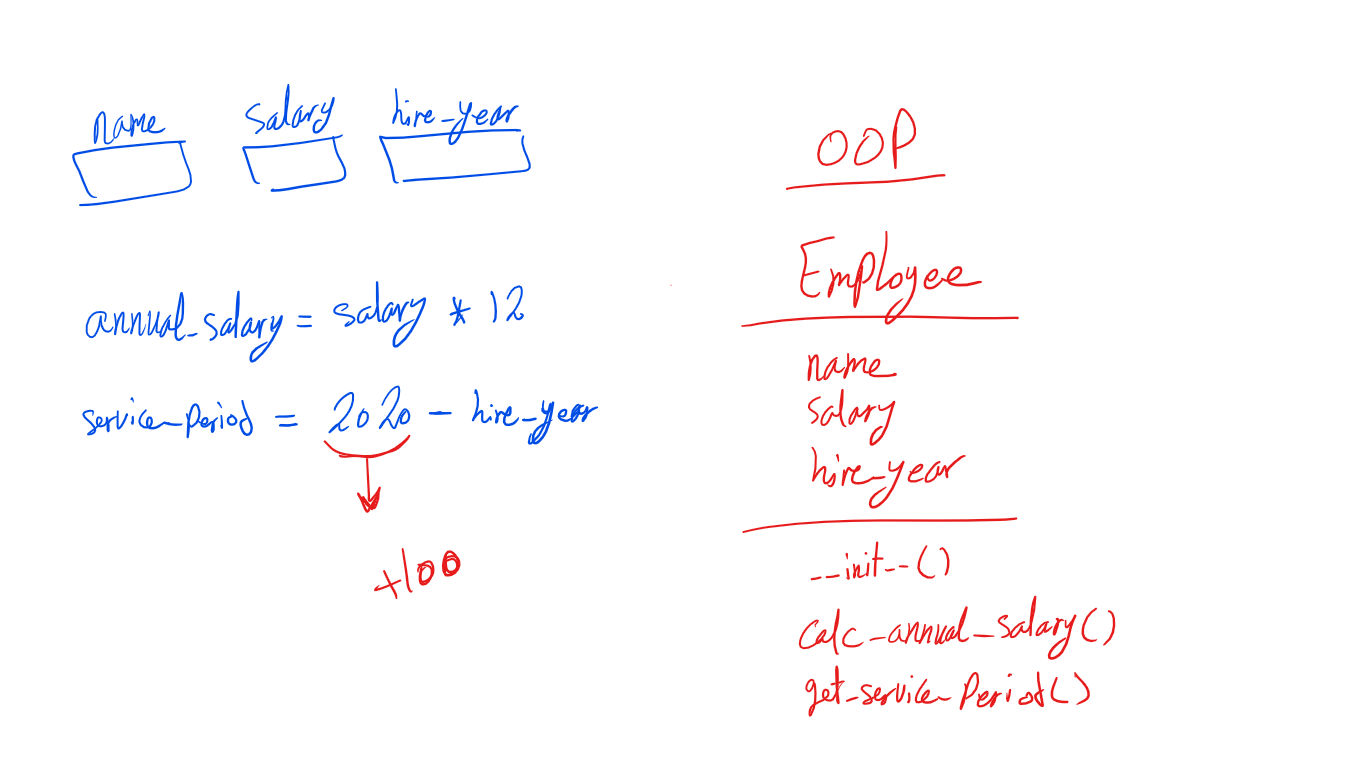 name salary hire_year
annual_salary = salary * 12
service_period = 2020 - hire_year
+100
OOP
Employee
name
salary
hire_year
__init__()
calc_annual_salary()
get_service_period()